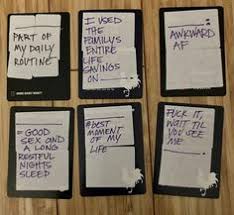 PART OF
MY DAILY
ROUTINE
I USED
THE
FAMILY'S
ENTIRE
LIFE
SAVINGS
ON
AWKWARD
AF
= GOOD
SEX AND
A LONG
RESTFUL
NIGHTS
SLEEP
#BEST
MOMENT
OF MY
LIFE
FUCK IT,
WAIT TIL
YOU SEE
ME